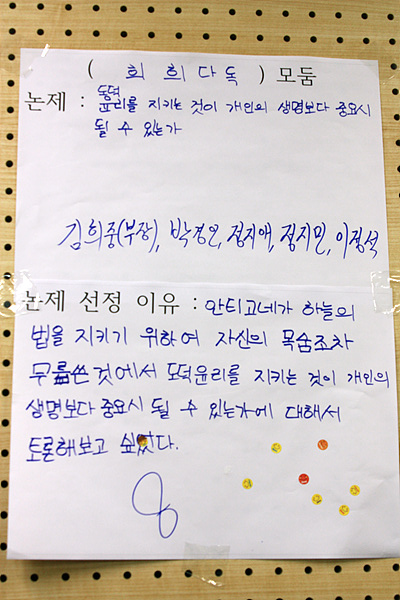 ( 희희다독 ) 모둠
논제 : 도덕윤리를 지키는 것이 개인의 생명보다 중요시
될 수 있는가
김희중(부장), 박경인, 정지애, 정지민, 이정석
논제 선정 이유 : 안티고네가 하늘의
법을 지키기 위하여 자신의 목숨조차
무릅쓴 것에서 도덕윤리를 지키는 것이 개인의
생명보다 중요시 될 수 있는가에 대해서
토론해보고 싶었다.